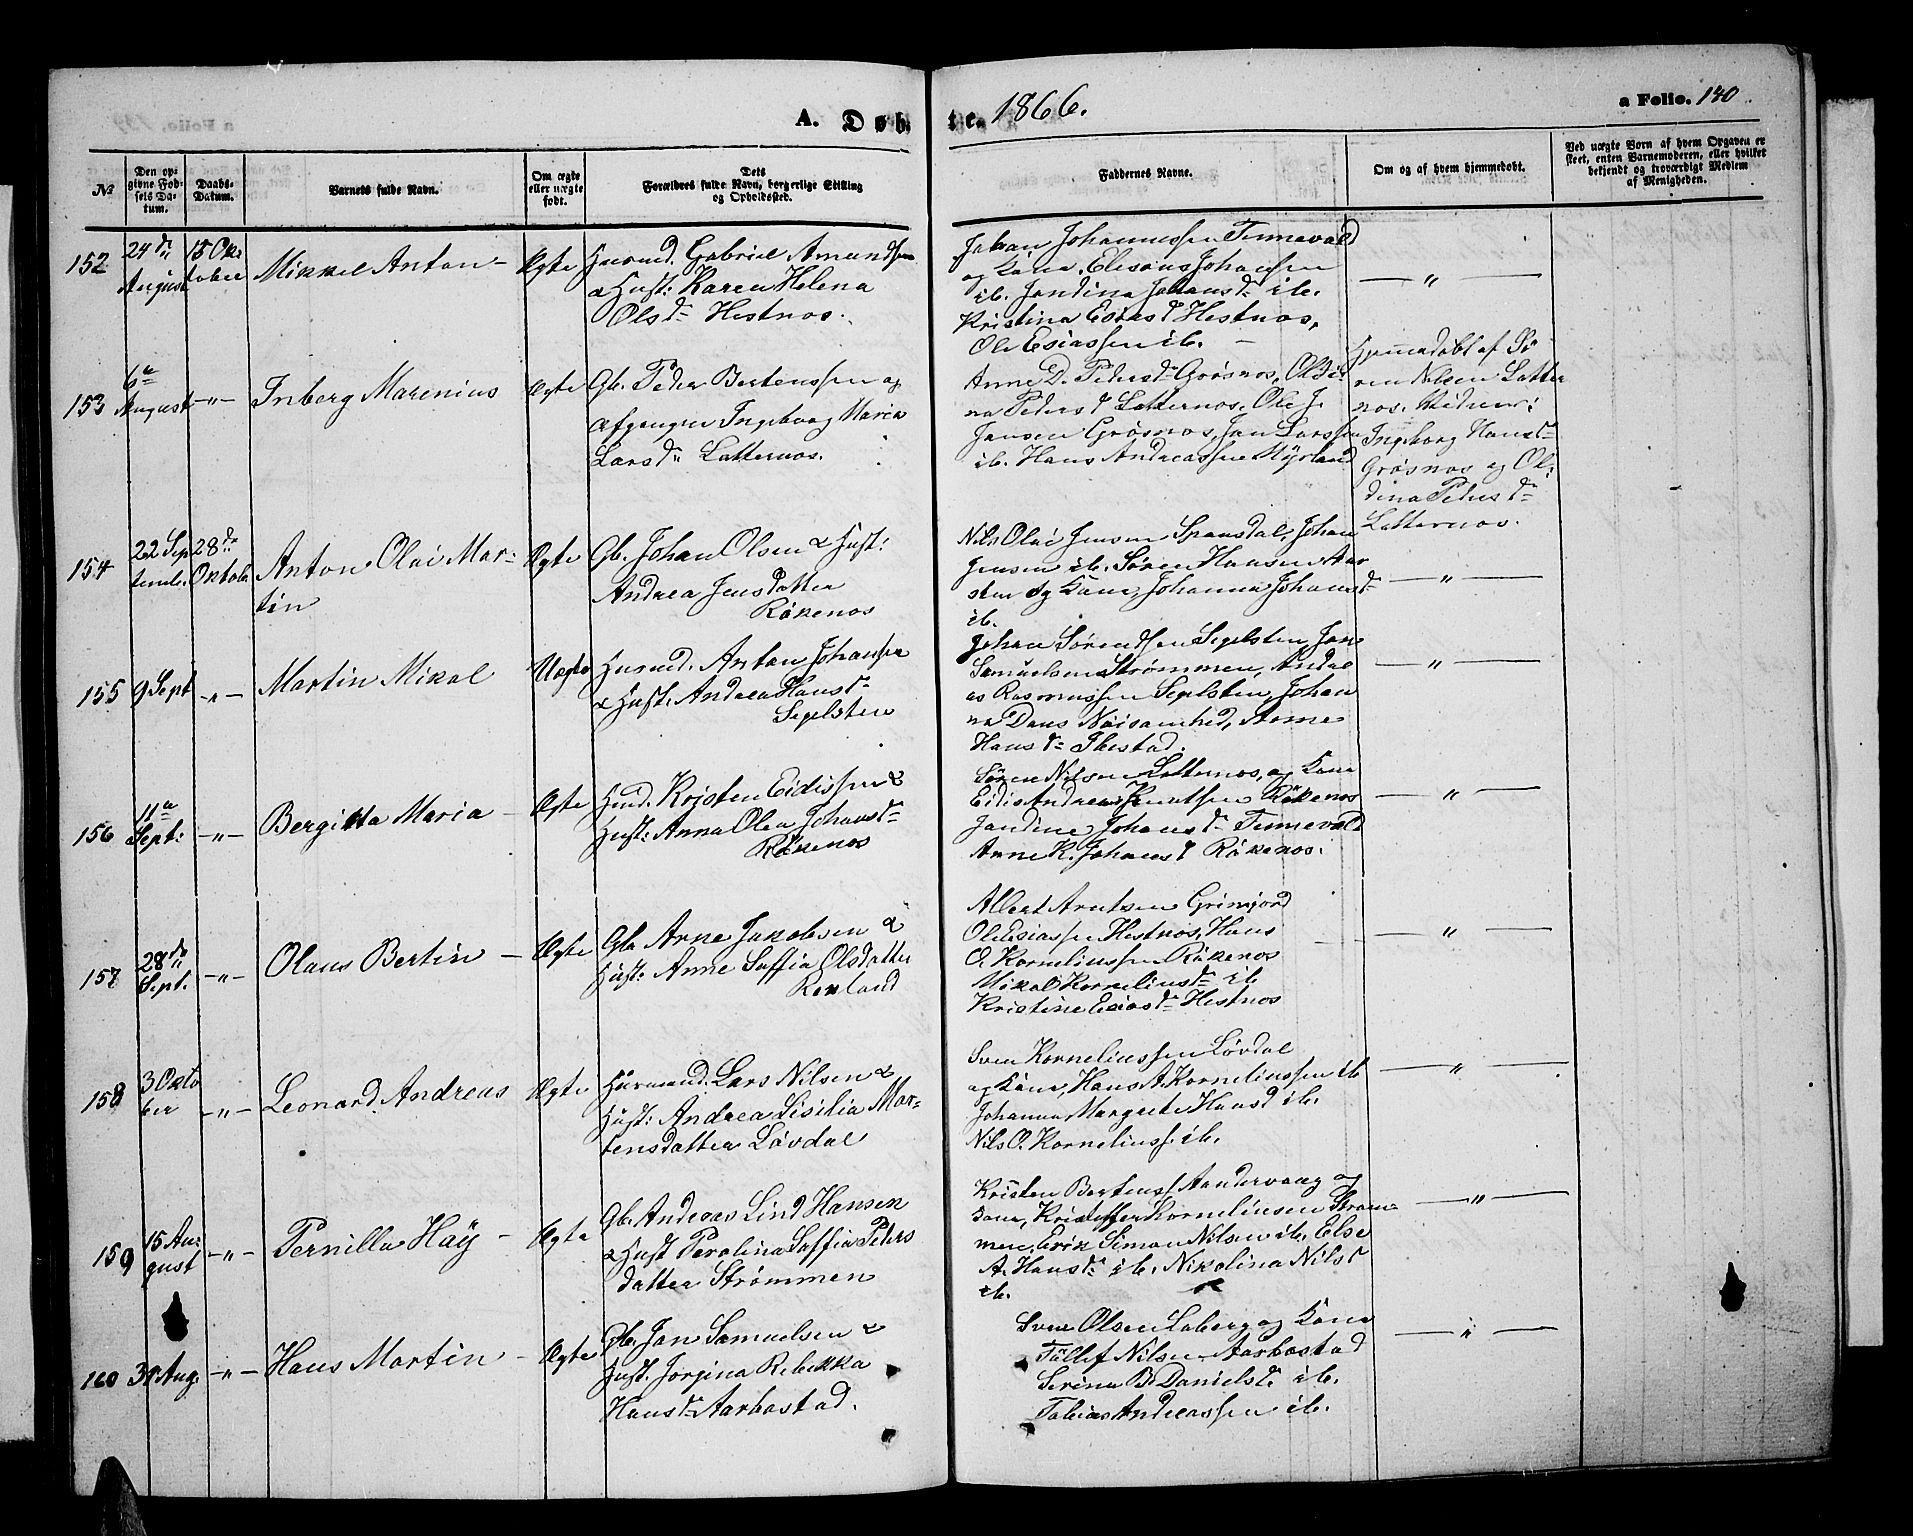 A. Døbte. 1866.
a Folio. 140
No
Den opgivne Fødsels Datum.
Daabs-Datum.
Barnets fulde Navn.
Om ægte eller uægte født.
Dets Forældres fulde Navn, borgerlige Stilling og Opholdssted.
Faddernes Navne.
Om og af hvem hjemmedøbt.
Ved uægte Børn af hvem Opgaven er skeet, enten Barnemoderen, eller hvilket bekjendt og troværdigt Medlem af Menigheden.
152
24de August
15 Oktober
Mikkel Anton
Ægte
Husmd. Gabriel Amundsen
& Hust: Karen Helena
Olsdr Hestnes.
Johan Johannessen Tennevold
og Kone, Elisæus Johansen
ib. Jandina Johansdr ib.
Kristina Esiasd Hestnes,
Ole Esiassen ib.
— " —
153
6te August
— " —
Inberg Marenius
Ægte
Gb. Peder Bertenssen og
afgangne Ingeborg Maria
Larsdr Latternos.
Anne D. Pedersdr Grøsnos, Oldi-
na Pedersd Latternos, Ole J.
Jansen Grøsnos, Jan Larssen
ib. Hans Andreassen Myrland
Hjemmedøbt af Sø-
ren Nilsen Latter
nos. Vidner:
Ingeborg Hansdr
Grøsnos og Ol-
dina Pedersdr
Latternos.
154
22 Septembr
28de Oktobr
Anton Olai Mar-
tin
Ægte
Gb. Johan Olsen & Hust:
Andrea Jensdatter
Røkenos
Nils Olai Jensen Spansdal, Johan
Jensen ib. Søren Hansen Aar
sten og Kone, Johanna Johansd
ib.
— " —
155
9 Sept
— " —
Martin Mikal
Uægte
Husmd. Anton Johansen
& Hust: Andrea Hansdr
Segelsten
Johan Sørendsen Segelsten, Jan
Samuelsen Strømmen, Andre
as Rasmussen Segelsten, Johan
na Dans Nøisomhed, Anne
Hansdr Ibestad.
— " —
156
11te Sept:
— " —
Bergitta Maria
Ægte
Husmd. Kristen Eidissen &
Hust: Anna Olea Johansdr
Røkenos
Søren Nilsen Latternos, og Kone
Eidis Andreas Knutsen Røkenos
Jandine Johansdr Tennevold
Anne K. Johansd Røkenos.
— " —
157
28de Sept.
— " —
Olaus Bertin
Ægte
Gb. Arne Jakobsen &
Hust: Anne Soffia Olsdatter
Renland
Albert Arntsen Grimjord
Ole Esiassen Hestnos, Hans
O. Korneliussen Røkenos
Mikal Korneliusdr ib
Kristine Esiasdr Hestnos
— " —
158
3 Oktober
— " —
Leonard Andreas
Ægte
Husmand. Lars Nilsen &
Hust: Andrea Sisilia Mor-
tensdatter Løvdal
Sven Korneliussen Løvdal
og Kone, Hans A. Korneliussen ib
Johanna Margrete Hansd ib.
Nils O. Korneliuss. ib.
— " —
159
15 August
— " —
Pernilla Høy
Ægte
Gb. Andreas Lind Hansen
& Hust Perolina Soffia Peders
datter Strømmen
Kristen Bertenss Aandervaag og
Kone, Kristoffer Korneliusen Strøm-
men, Erik Simon Nilsen ib. Else
A. Hansdr ib. Nikolina Nilsd
ib.
— " —
160
31 Aug.
— " —
Hans Martin
Ægte
Gb. Jan Samuelsen &
Hust. Jorgina Rebekka
Hansdr Aarbostad.
Sven Olsen Laberg og Kone
Tollef Nilsen Aarbostad
Serina B. Danielsdr ib.
Tobias Andreassen ib.
— " —